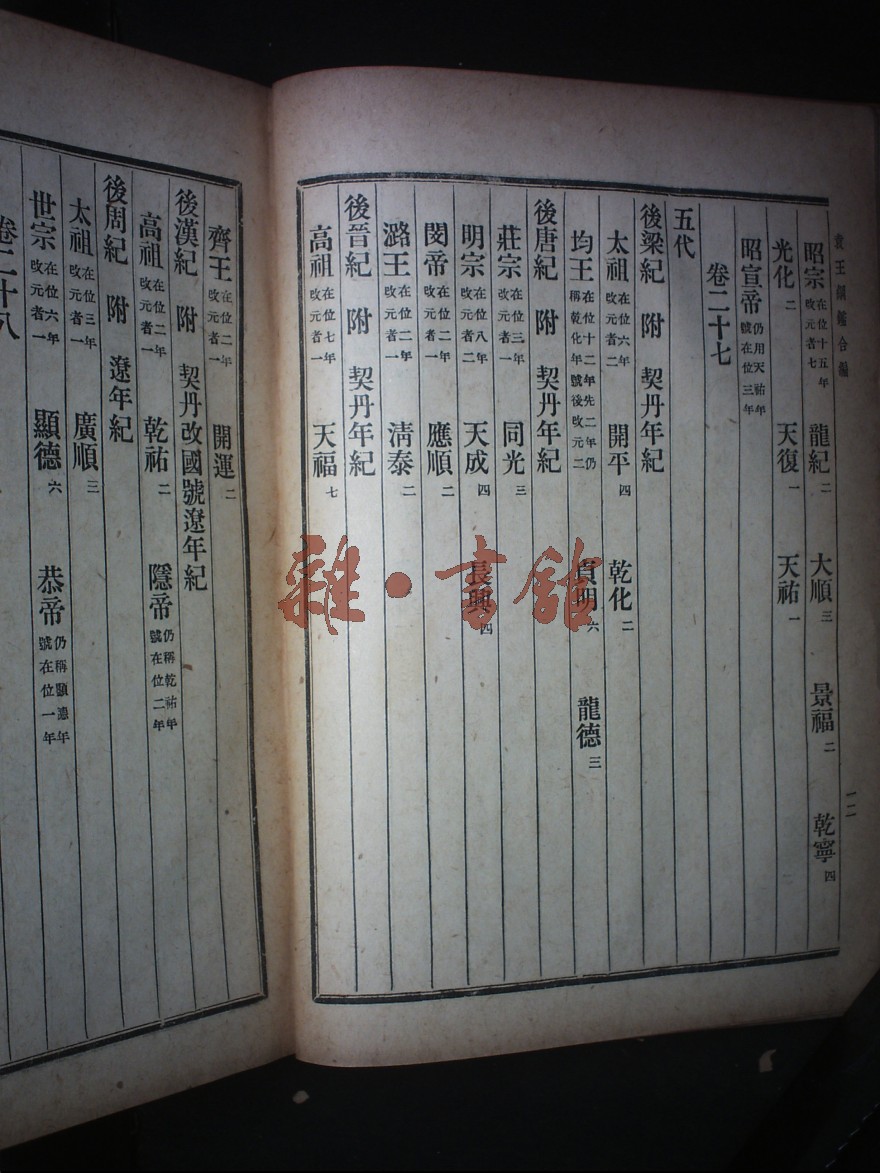 袁王綱鑑合編
一二
昭宗 在位十五年改元者七 龍紀二 大順三 景福二 乾寧四
光化二 天復一 天祐一
昭宣帝 仍用天祐年號在位三年
卷二十七
五代
後梁紀 附 契丹年紀
太祖 在位六年改元者二 開平四 乾化二
均王 在位十二年先二年仍稱乾化年號後改元二 貞明六 龍德三
後唐紀 附 契丹年紀
莊宗 在位三年改元者一 同光三
明宗 在位八年改元者二 天成四 長興四
閔帝 在位二年改元者一 應順二
潞王 在位二年改元者一 清泰二
後晉紀 附 契丹年紀
高祖 在位七年改元者一 天福七
齊王 在位二年改元者一 開運二
後漢紀 附 契丹改國號遼年紀
高祖 在位二年改元者一 乾祐二 隱帝 仍稱乾祐年號在位二年
後周紀 附 遼年紀
太祖 在位三年改元者一 廣順三
世宗 在位六年改元者一 顯德六 恭帝 仍稱顯德年號在位一年
卷二十八
雜·書館